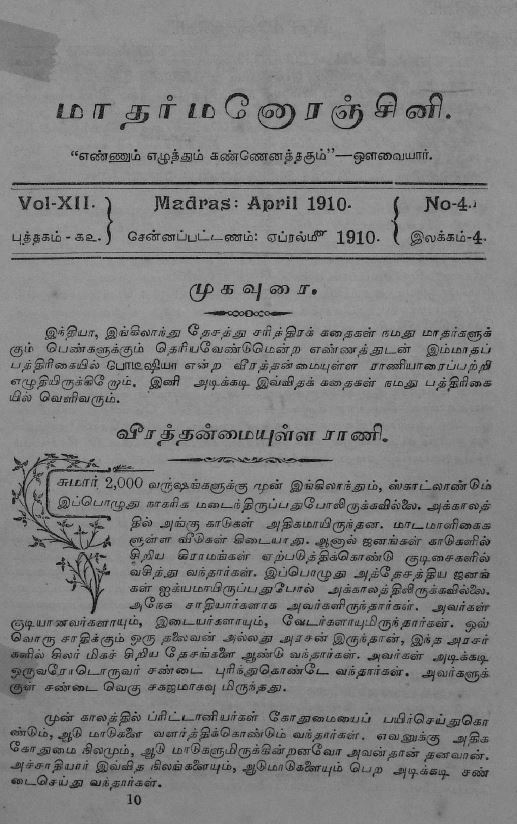 மாதர்மனோரஞ்சினி.
“எண்ணும் எழுத்தும் கண்ணெனத்தகும்”—ஔவையார்.
Vol-XII. Madras: April 1910. No-4.
புத்தகம் - கஉ. சென்னப்பட்டணம்: ஏப்ரல்மீ 1910. இலக்கம்-4.
முகவுரை.
இந்தியா, இங்கிலாந்து தேசத்து சரித்திரக் கதைகள் நமது மாதர்களுக்
கும் பெண்களுக்கும் தெரியவேண்டுமென்ற எண்ணத்துடன் இம்மாதப்
பத்திரிகையில் போடீஷியா என்ற வீரத்தன்மையுள்ள ராணியாரைப்பற்றி
எழுதியிருக்கிறோம். இனி அடிக்கடி இவ்விதக் கதைகள் நமது பத்திரிகை
யில் வெளிவரும்.
வீரத்தன்மையுள்ள ராணி.
சுமார் 2,000 வருஷங்களுக்கு முன் இங்கிலாந்தும், ஸ்காட்லாண்டும்
இப்பொழுது நாகரிக மடைந்திருப்பதுபோலிருக்கவில்லை. அக்காலத்
தில் அங்கு காடுகள் அதிகமாயிருந்தன. மாடமாளிகைக
ளுள்ள வீடுகள் கிடையாது. ஆனால் ஜனங்கள் காடுகளில்
சிறிய கிராமங்கள் ஏற்படுத்திக்கொண்டு குடிசைகளில்
வசித்து வந்தார்கள். இப்பொழுது அத்தேசத்திய ஜனங்
கள் ஐக்யமாயிருப்பதுபோல் அக்காலத்திலிருக்கவில்லை.
அநேக சாதியார்களாக அவர்களிருந்தார்கள். அவர்கள்
குடியானவர்களாயும், இடையர்களாயும், வேடர்களாயுமிருந்தார்கள். ஒவ்
வொரு சாதிக்கும் ஒரு தலைவன் அல்லது அரசன் இருந்தான், இந்த அரசர்
களில் சிலர் மிகச் சிறிய தேசங்களை ஆண்டு வந்தார்கள். அவர்கள் அடிக்கடி
ஒருவரோடொருவர் சண்டை புரிந்துகொண்டே வந்தார்கள். அவர்களுக்
குள் சண்டை வெகு சகஜமாகவு மிருந்தது.
முன் காலத்தில் ப்ரிட்டானியர்கள் கோதுமையைப் பயிர்செய்துகொ
ண்டும், ஆடு மாடுகளை வளர்த்திக்கொண்டும் வந்தார்கள். எவனுக்கு அதிக
கோதுமை நிலமும், ஆடு மாடுகளுமிருக்கின்றனவோ அவன்தான் தனவான்.
அச்சாதியார் இவ்வித நிலங்களையும், ஆடுமாடுகளையும் பெற அடிக்கடி சண்
டைசெய்து வந்தார்கள்.
10